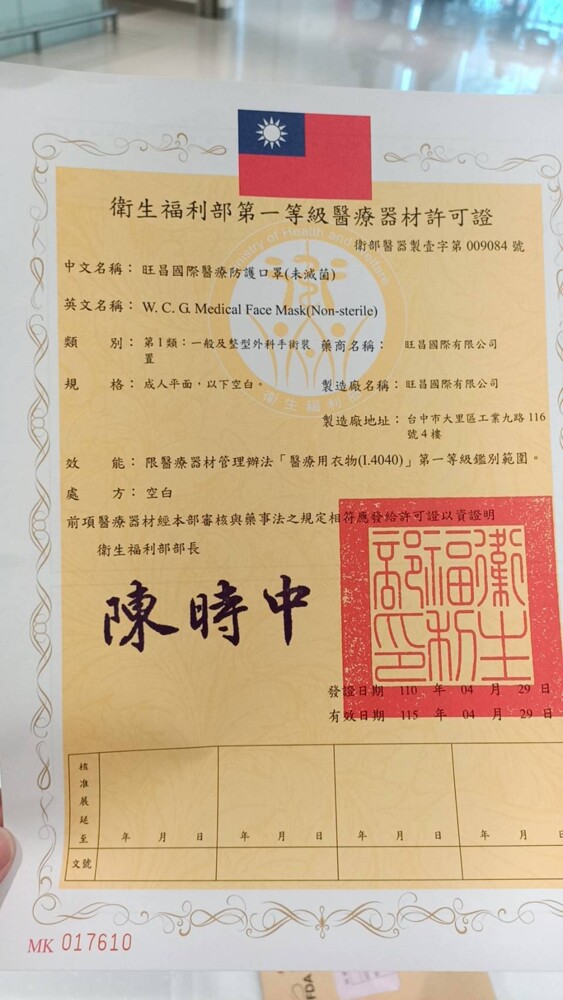 衛生福利部第一等級醫療器材許可證
衛部醫器製壹字第 009084 號
中文名稱：旺昌國際醫療防護口罩(未滅菌)
英文名稱：W. C. G. Medical Face Mask(Non-sterile)
類　　別：第I類：一般及整型外科手術裝置
藥商名稱：旺昌國際有限公司
規　　格：成人平面，以下空白。
製造廠名稱：旺昌國際有限公司
製造廠地址：台中市大里區工業九路 116
號 4 樓
效　　能：限醫療器材管理辦法「醫療用衣物(I.4040)」第一等級鑑別範圍。
處　　方：空白
前項醫療器材經本部審核與藥事法之規定相符應發給許可證以資證明
衛生福利部部長
陳時中
衛生福利部印
發證日期 110 年 04 月 29 日
有效日期 115 年 04 月 29 日
核准展延至 年 月 日 年 月 日 年 月 日 年 月 日
文號
MK 017610
Ministry of Health and Welfare
衛生福利部
FDA